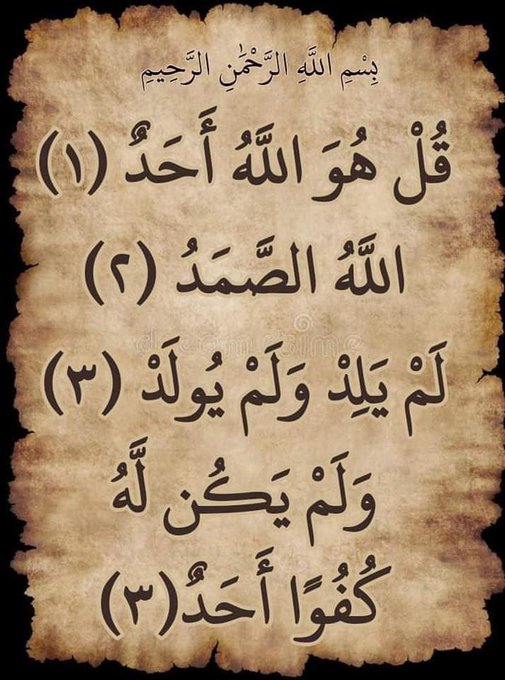 بِسْمِ اللَّهِ الرَّحْمَٰنِ الرَّحِيمِ
قُلْ هُوَ اللَّهُ أَحَدٌ (١)
اللَّهُ الصَّمَدُ (٢)
لَمْ يَلِدْ وَلَمْ يُولَدْ (٣)
وَلَمْ يَكُن لَّهُ
كُفُوًا أَحَدٌ(٣)